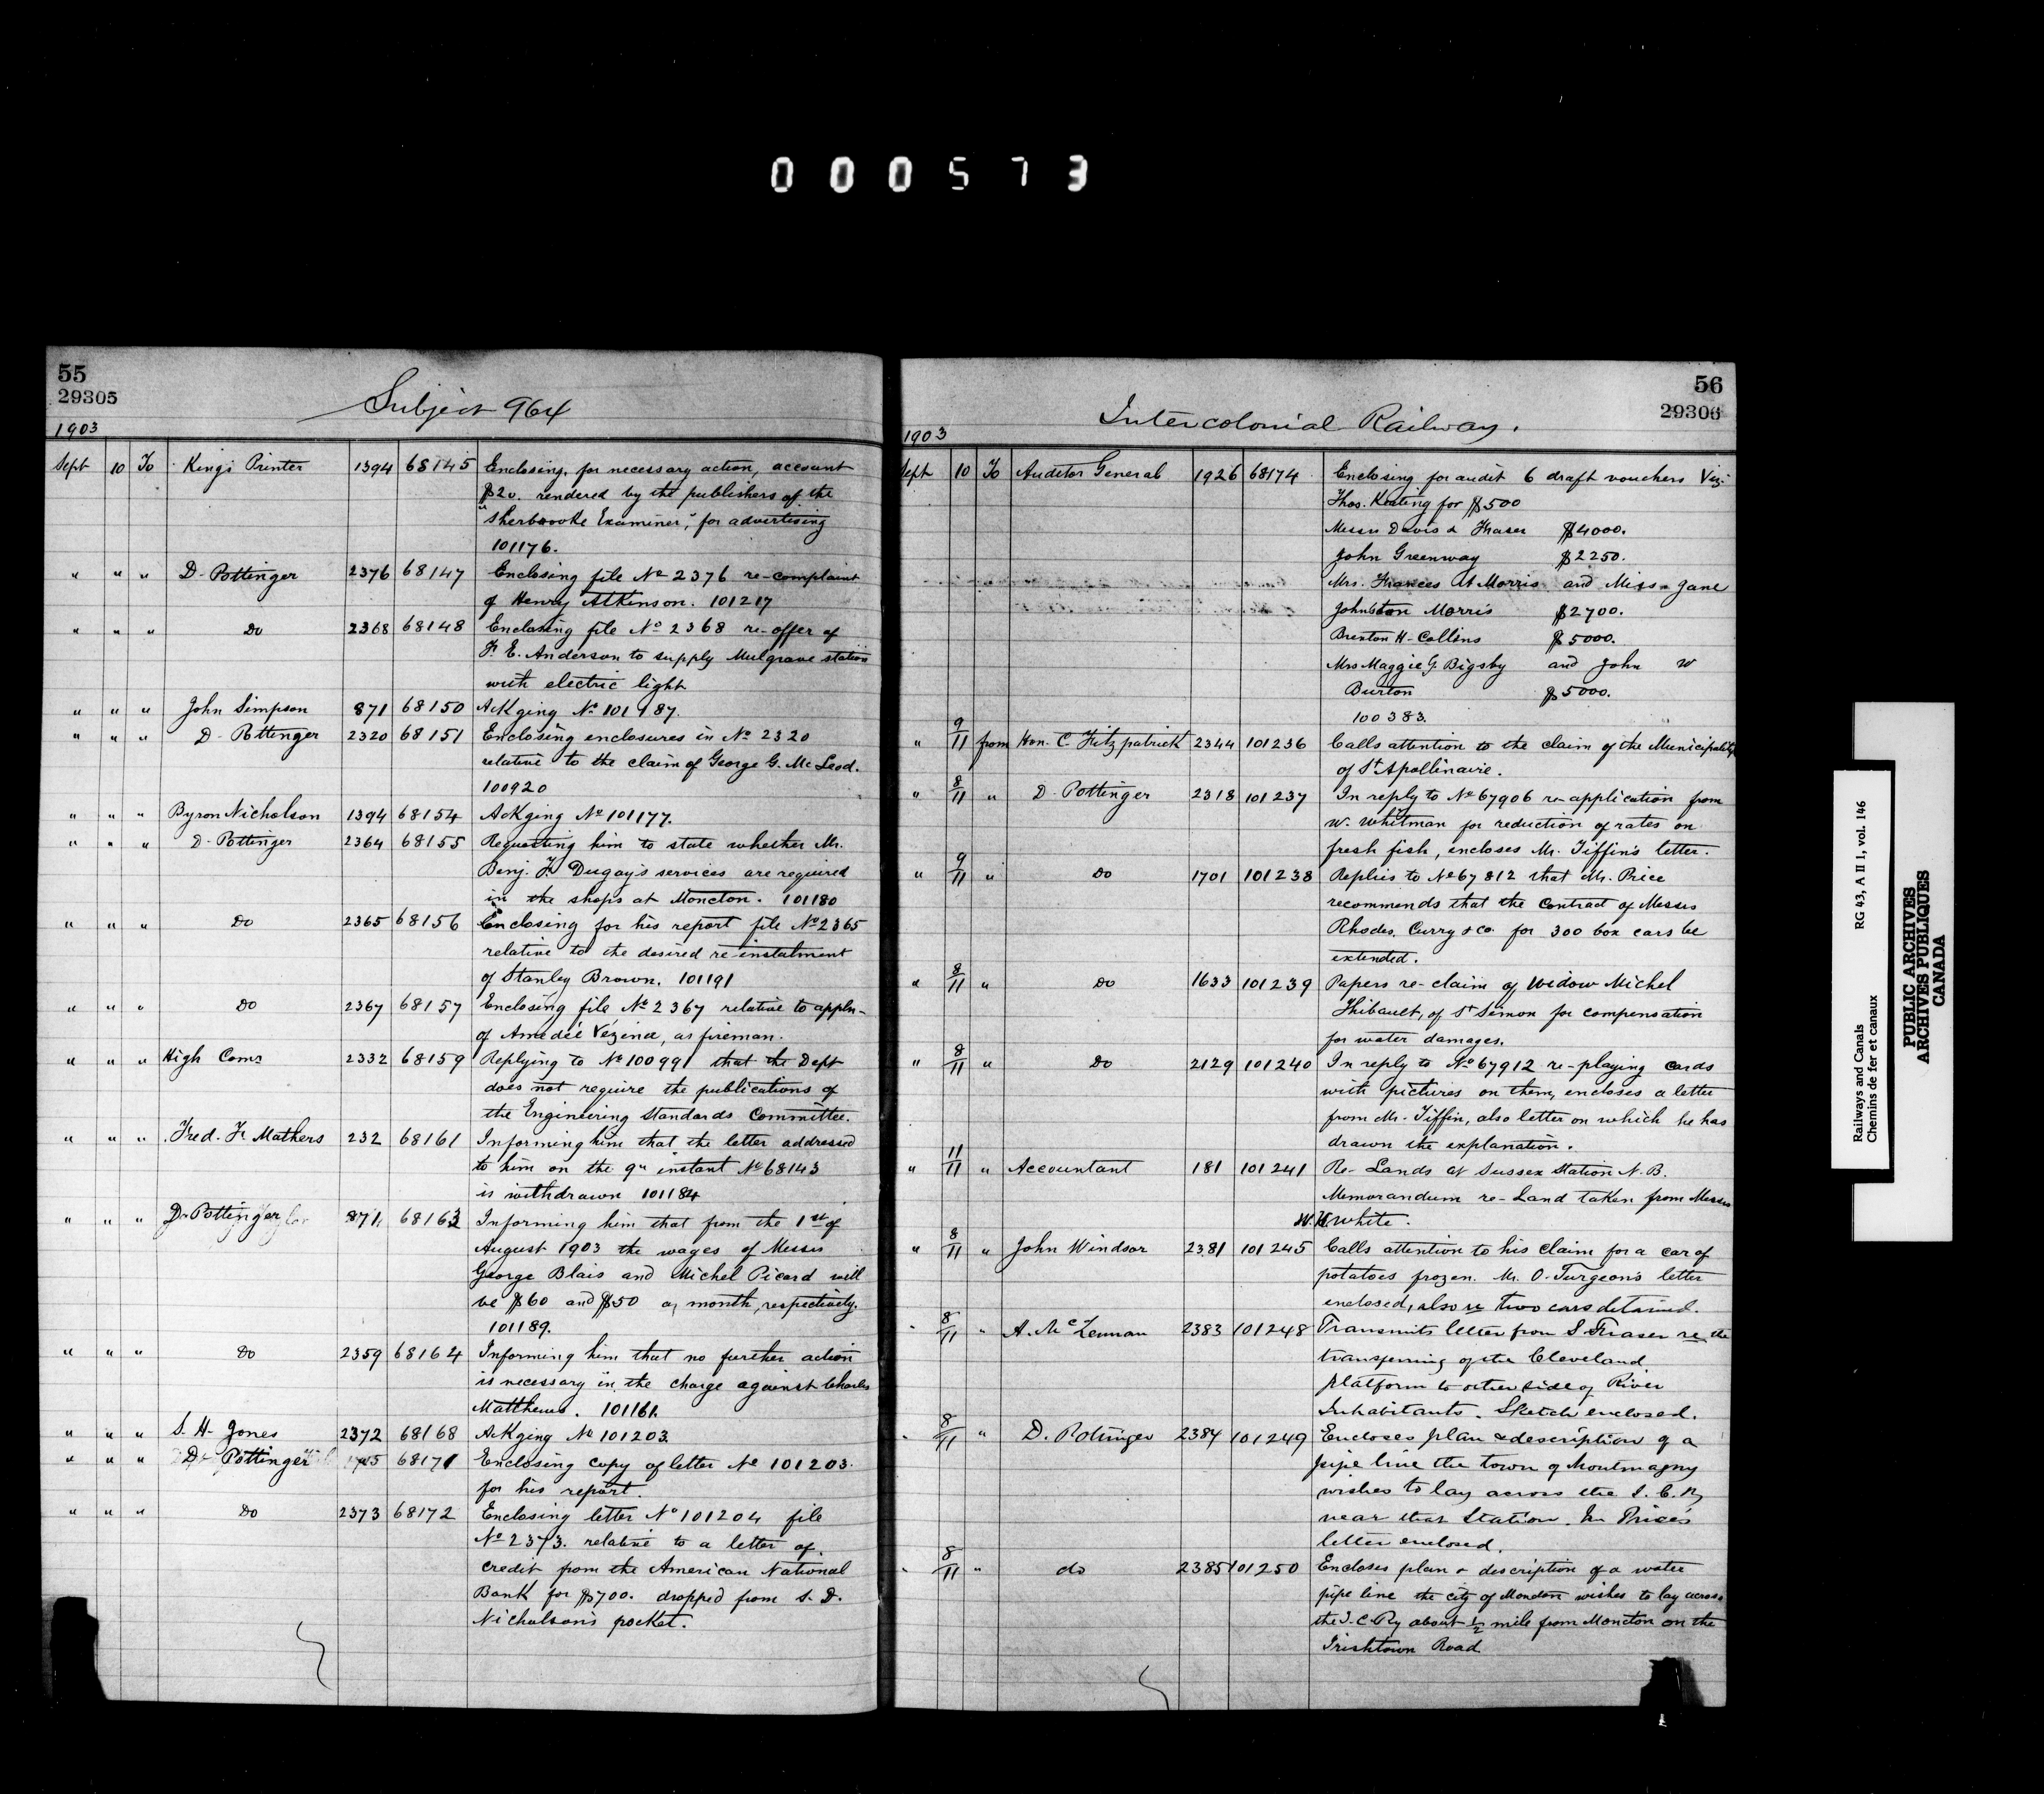 000573
55
29305
Subject 964
1903
Sept 10 To King's Printer 1394 68145 Enclosing, for necessary action, account
$20. rendered by the publishers of the
"Sherbrooke Examiner," for advertising
101176.
" " " D. Pottinger 2376 68147 Enclosing file No 2376 re-complaint
of Henry Atkinson. 101217
" " " Do 2368 68148 Enclosing file No 2368 re-offer of
F. E. Anderson to supply Mulgrave station
with electric light
" " " John Simpson 871 68150 Ackging No. 101187.
" " " D. Pottinger 2320 68151 Enclosing enclosures in No 2320
relative to the claim of George G. McLeod.
100920
" " " Byron Nicholson 1394 68154 Ackging No 101177.
" " " D. Pottinger 2364 68155 Requesting him to state whether Mr.
Benj. F. Dugay's services are required
in the shops at Moncton. 101180
" " " Do 2365 68156 Enclosing for his report file No 2365
relative to the desired re-instalment
of Stanley Brown. 101191
" " " Do 2367 68157 Enclosing file No 2367 relative to appln-
of Amedée Vezina, as fireman.
" " " High Comr 2332 68159 Replying to No 100991 that the Dept
does not require the publications of
the Engineering Standards Committee.
" " " Fred. F. Mathers 232 68161 Informing him that the letter addressed
to him on the 9th instant No 68143
is withdrawn 101184
" " " D. Pottinger 871 68163 Informing him that from the 1st of
August 1903 the wages of Messrs
George Blais and Michel Picard will
be $60 and $50 a month, respectively.
101189.
" " " Do 2359 68164 Informing him that no further action
is necessary in the charge against Charles
Matthews. 101161.
" " " S. H. Jones 2372 68168 Ackging No 101203.
" " " D. Pottinger 68171 Enclosing copy of letter No 101203.
for his report.
" " " Do 2373 68172 Enclosing letter No 101204 file
No 2373. relative to a letter of
credit from the American National
Bank for $700. dropped from S. D.
Nicholson's pocket.
56
29306
Intercolonial Railway.
1903
Sept 10 To Auditor General 1926 68174 Enclosing for audit 6 draft vouchers Viz:
Thos. Keating for $500
Messrs Davis & Fraser $4000.
John Greenway $2250.
Mrs. Frances At Morris and Miss Jane
Johnston Morris $2700.
Brenton H. Collins $5000.
Mrs Maggie G. Bigsby and John W
Burton $5000.
100383.
" 9/11 from Hon. C. Fitzpatrick 2344 101236 Calls attention to the claim of the Municipality
of St Apollinaire.
" 8/11 " D. Pottinger 2318 101237 In reply to No 67906 re-application from
W. Whitman for reduction of rates on
fresh fish, encloses Mr. Tiffin's letter.
" 9/11 " Do 1701 101238 Replies to No 67812 that Mr. Price
recommends that the Contract of Messrs
Rhodes, Curry & Co. for 300 box cars be
extended.
" 8/11 " Do 1633 101239 Papers re-claim of Widow Michel
Thibault, of St Simon for compensation
for water damages.
" 8/11 " Do 2129 101240 In reply to No 67912 re-playing cards
with pictures on them, encloses a letter
from Mr. Tiffin, also letter on which he has
drawn the explanation.
" 11/11 " Accountant 181 101241 Re- Lands at Sussex Station N.B.
Memorandum re-Land taken from Messrs
W. H. White.
" 8/11 " John Windsor 2381 101245 Calls attention to his claim for a car of
potatoes frozen. Mr. O. Turgeon's letter
enclosed, also re two cars detained.
" 8/11 " A. McLennan 2383 101248 Transmits letter from S Fraser re the
transferring of the Cleveland
platform to other side of River
Inhabitants. Sketch enclosed.
" 8/11 " D. Pottinger 2384 101249 Encloses plan & description of a
pipe line the town of Montmagny
wishes to lay across the I. C. Ry
near that Station. Mr Price's
letter enclosed.
" 8/11 " do 2385 101250 Encloses plan & description of a water
pipe line the city of Moncton wishes to lay across
the I. C. Ry about 1/2 mile from Moncton on the
Irishtown Road
Railways and Canals RG 43, A II 1, vol. 146
Chemins de fer et canaux
PUBLIC ARCHIVES
ARCHIVES PUBLIQUES
CANADA